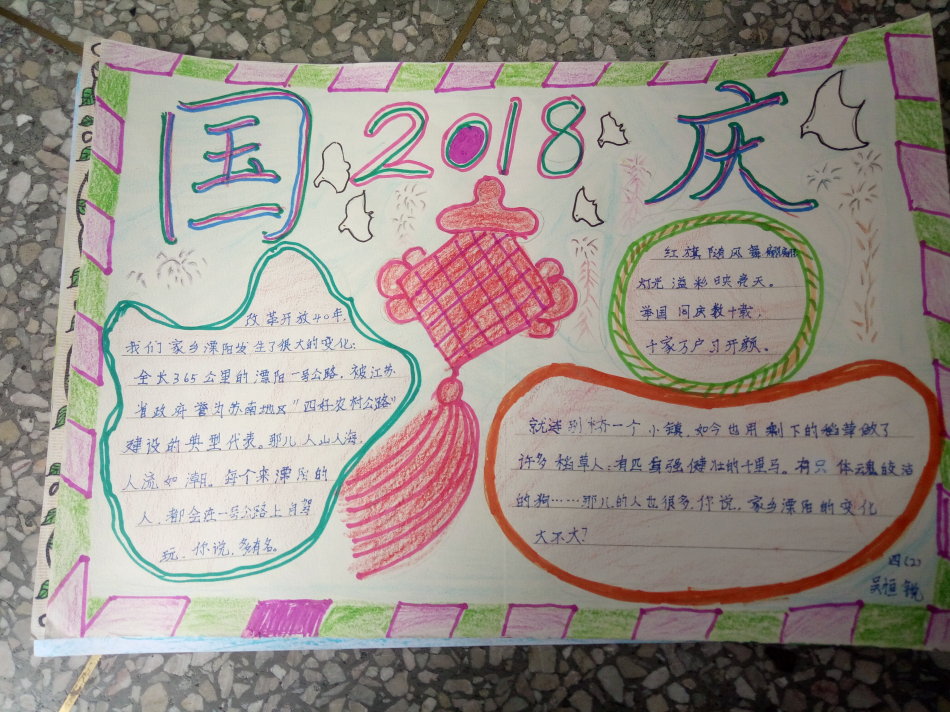 国 2018 庆
改革开放40年,
我们家乡溧阳发生了很大的变化:
全长365公里的溧阳一号公路,被江苏
省政府誉为苏南地区"四好农村公路"
建设的典型代表。那儿人山人海,
人流如潮。每个来溧阳的
人,都会在一号公路上自驾
玩,你说,多有名。
红旗随风舞翩翩
灯光溢彩映亮天。
举国同庆数十载,
千家万户习开颜。
就连别桥一个小镇,如今也用剩下的稻草做了
许多稻草人:有匹身强健壮的千里马。有只体魂皎洁
的狗……那儿的人也很多,你说,家乡溧阳的变化
大不大?
四(2)
吴恒锐